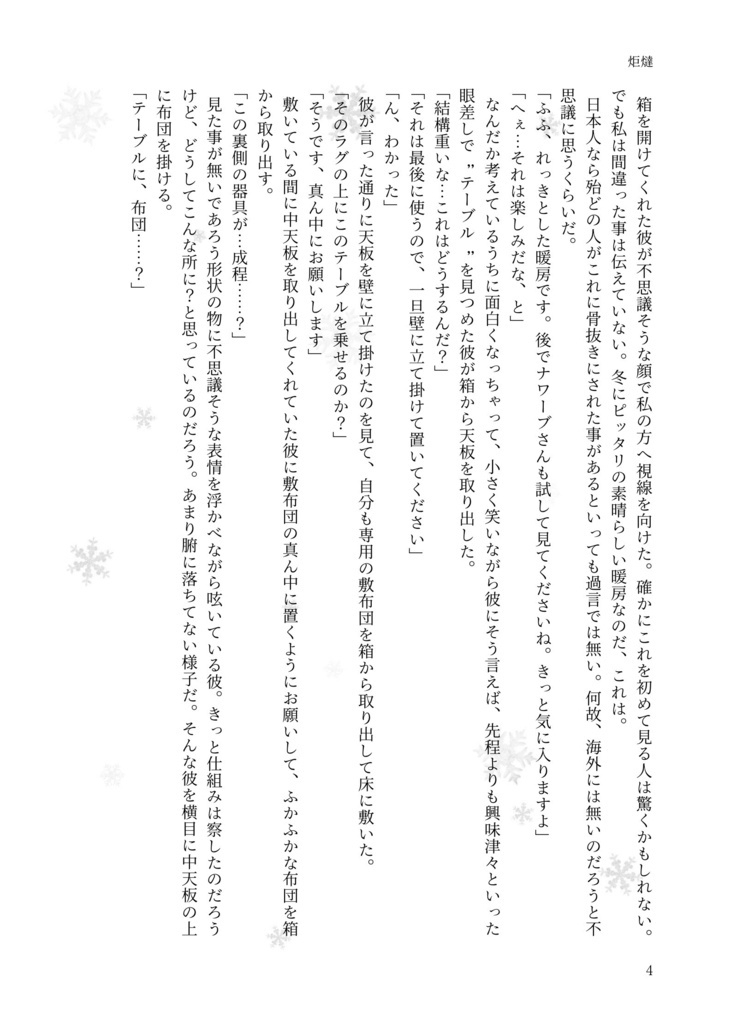 炬燵
　箱を開けてくれた彼が不思議そうな顔で私の方へ視線を向けた。確かにこれを初めて見る人は驚くかもしれない。
でも私は間違った事は伝えていない。冬にピッタリの素晴らしい暖房なのだ、これは。
　日本人なら殆どの人がこれに骨抜きにされた事があるといっても過言では無い。何故、海外には無いのだろうと不
思議に思うくらいだ。
「ふふ、れっきとした暖房です。後でナワーブさんも試して見てくださいね。きっと気に入りますよ」
「へぇ…それは楽しみだな、と」
　なんだか考えているうちに面白くなっちゃって、小さく笑いながら彼にそう言えば、先程よりも興味津々といった
眼差しで〝テーブル〟を見つめた彼が箱から天板を取り出した。
「結構重いな…これはどうするんだ？」
「それは最後に使うので、一旦壁に立て掛けて置いてください」
「ん、わかった」
　彼が言った通りに天板を壁に立て掛けたのを見て、自分も専用の敷布団を箱から取り出して床に敷いた。
「そのラグの上にこのテーブルを乗せるのか？」
「そうです、真ん中にお願いします」
　敷いている間に中天板を取り出してくれていた彼に敷布団の真ん中に置くようにお願いして、ふかふかな布団を箱
から取り出す。
「この裏側の器具が…成程……？」
　見た事が無いであろう形状の物に不思議そうな表情を浮かべながら呟いている彼。きっと仕組みは察したのだろう
けど、どうしてこんな所に？と思っているのだろう。あまり腑に落ちてない様子だ。そんな彼を横目に中天板の上
に布団を掛ける。
「テーブルに、布団……？」
4